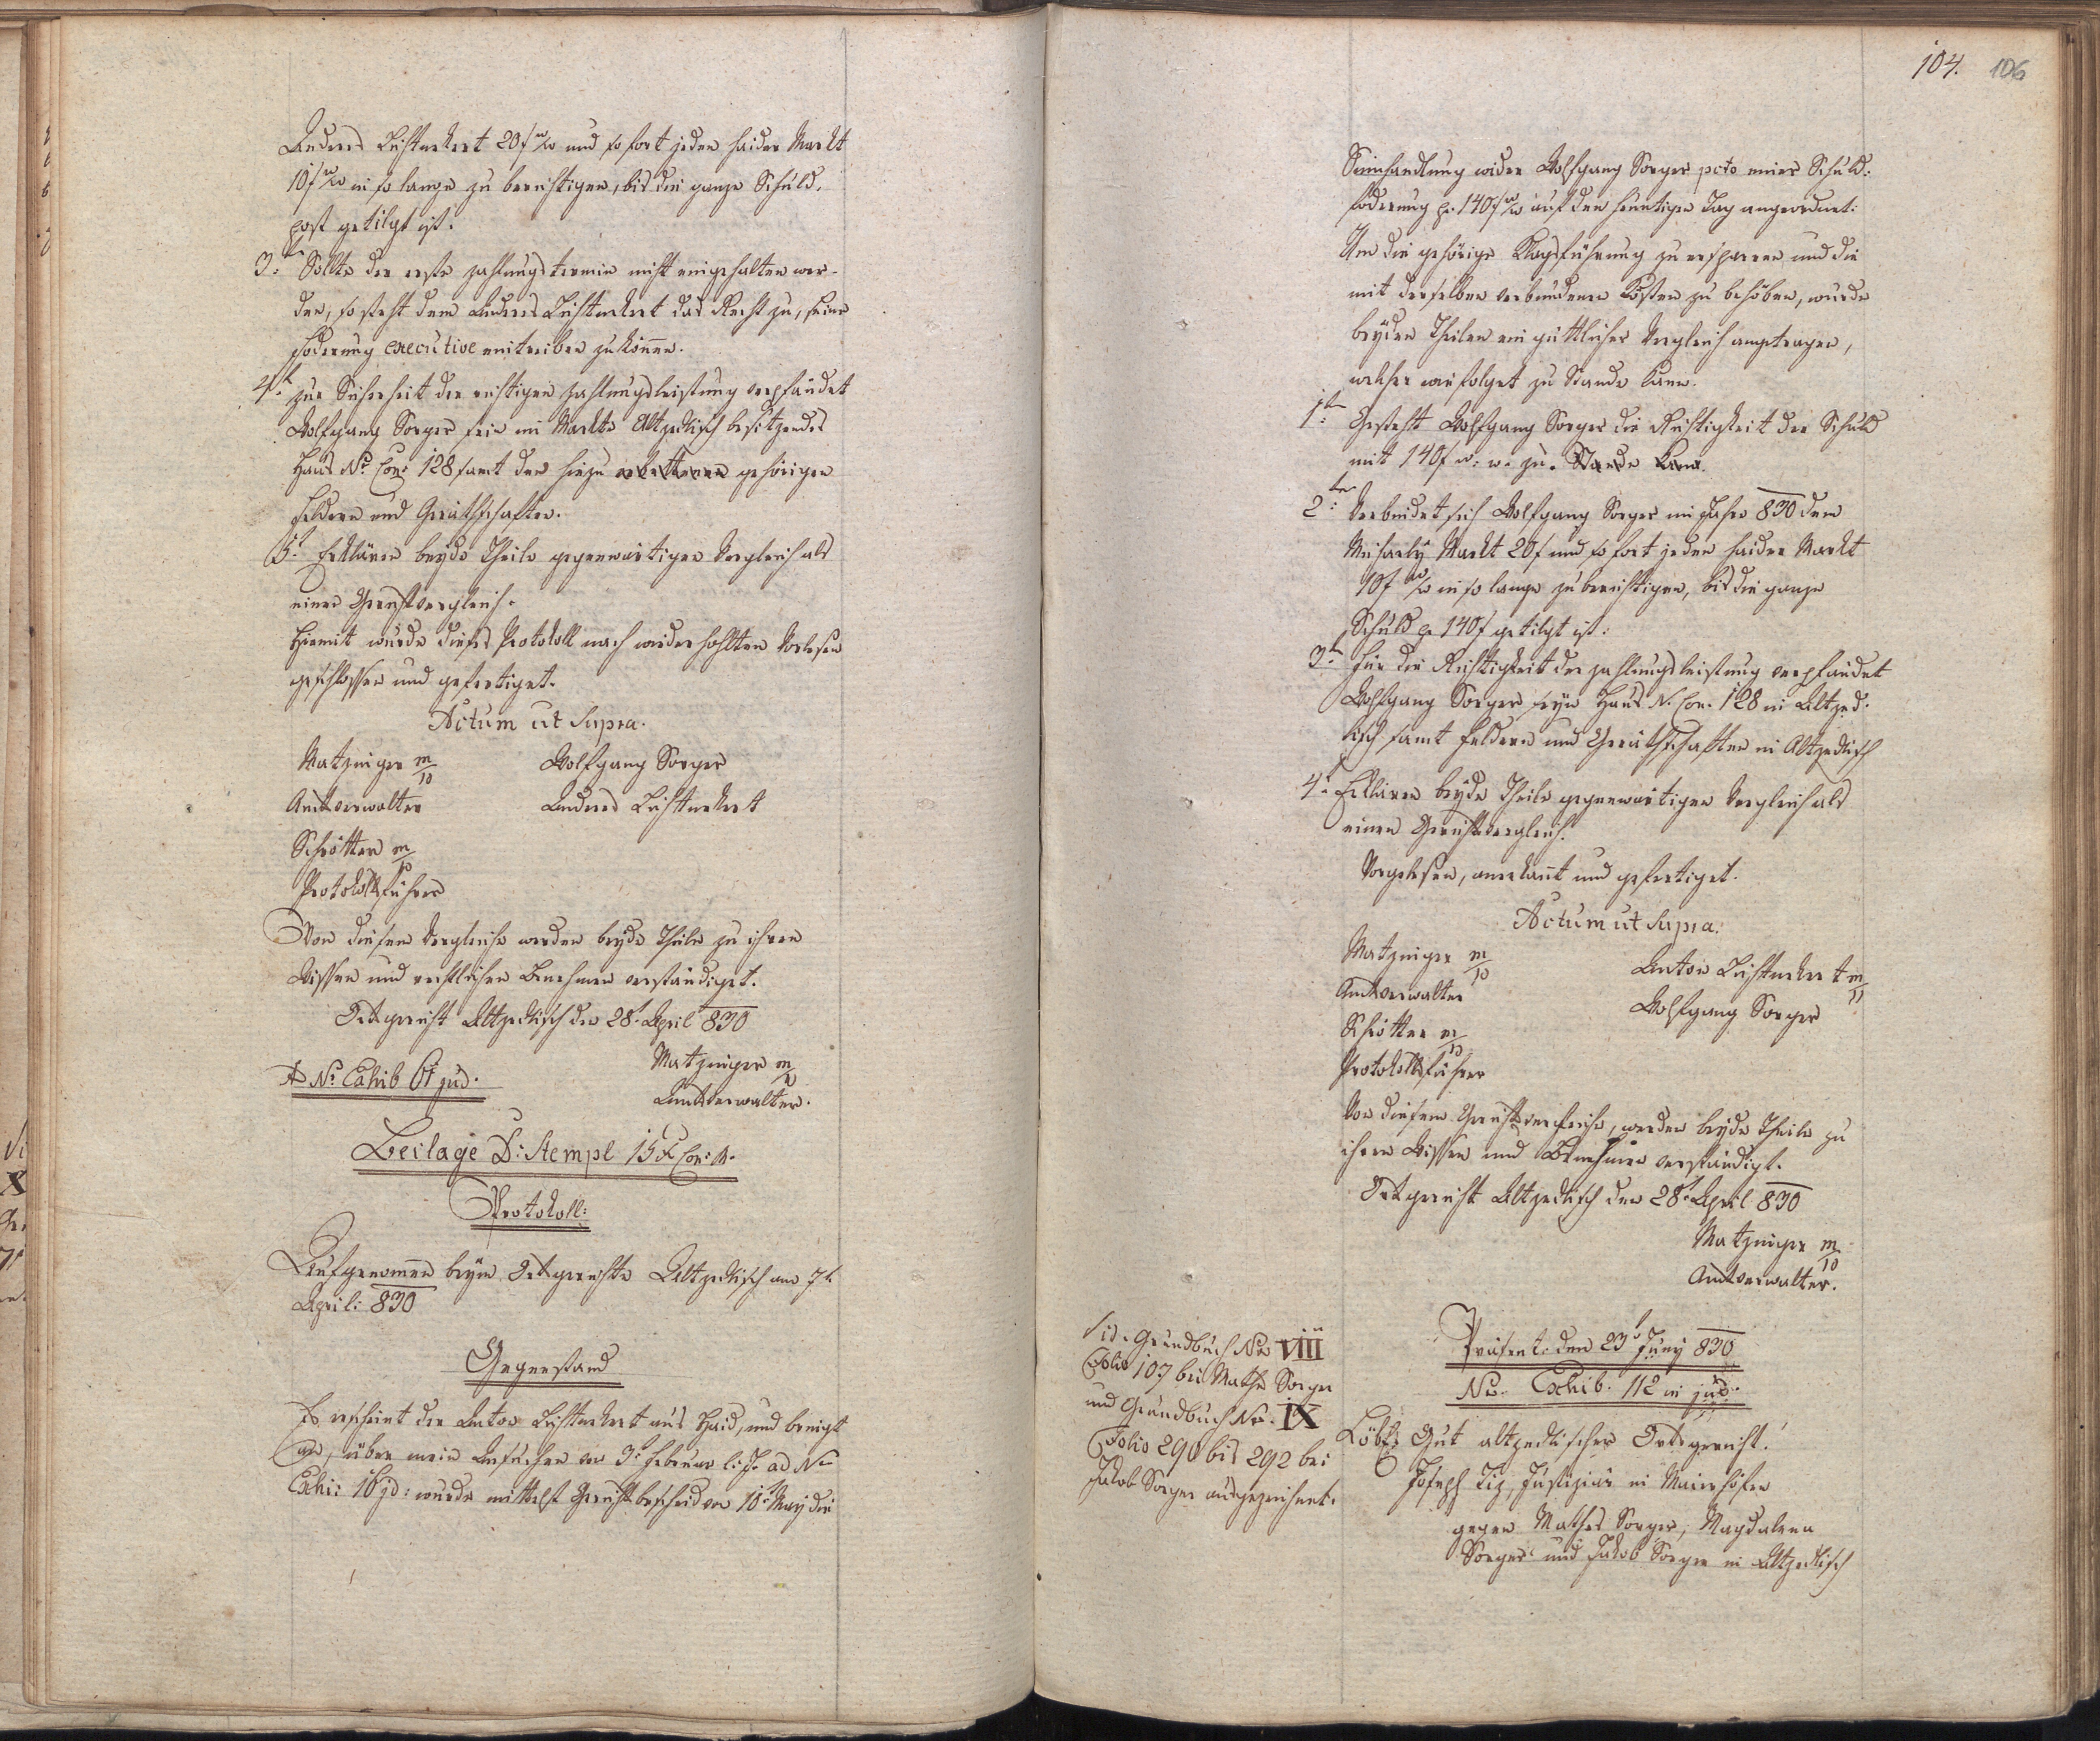 Andreas Lichtneckert 20 f w/w und so fort jeden Haider Markt
10 f w/w in so lange zu berichtigen, bis die ganze Schuld-
post getilgt ist.
3tens Sollte der erste Zahlungstermin nicht eingehalten wer-
den, so steht dem Andreas Lichtneckert das Recht zu, seine
Foderung executive eintreiben zu können.
4t zur Sicherheit der richtigen Zahlungsleistung verpfändet
Wolfgang Sorger sein im Markte Altzedlisch besitzendes
Haus No Con: 128 samt den hiezu gehörigen
Feldern und Geräthschaften.
5t Erklären beyde Theile gegenwärtigen Vergleich als
einen Gerichtsvergleich.
Hiemit wurde dieses Protokoll nach wiederhohlten Vorlesen
geschlossen und gefertiget.
Actum ut Supra.
Matzinger m/p Wolfgang Sorger
Amtsverwalter Andreas Lichtneckert
Schrötter m/p
Protokollsführer
Von diesem Vergleiche werden beyde Theile zu ihren
Wissen und rechtlichen Benehmen verständiget.
Ortsgericht Altzedlisch den 28t April 830
Matzinger m/p
Amtsverwalter.
No Exhib 61 jud.
Beilage D: Stempl 15 x Con: M.
Protokoll:
Aufgenommen beym Ortsgerichte Altzedlisch am 7t
April: 830
Gegenstand
Es erscheint der Anton Lichtneckert aus Haid, und bringt
an, über mein Ansuchen vom 3t Februar l: J. ad No
Exhi: 16 jd: wurde mittelst Gerichtsbescheid vom 10t May die
104. 106
Seinhandlung wider Wolfgang Sorger pcto einer Schuld-
foderung pr 140 f w/w auf den heuntigen Tag angeordnet.
Um die gehörige Klagsführung zu ersparren und die
mit derselben verbundenen Kosten zu behöben, wurde
beyden Theilen ein güttlicher Vergleich angetragen,
welcher wie folget zu Stande kam.
1tens Gesteht Wolfgang Sorger die Richtigkeit der Schuld
mit 140 f w: w. zu. Stande kam.
2tens Verbindet sich Wolfgang Sorger im Jahre 830 dem
Michaely Markt 20 f und so fort jeden Haider Markt
10 f w/w in so lange zu berichtigen, bis die ganze
Schuld pr 140 f getilgt ist.
3tens Für die Richtigkeit der Zahlungsleistung verpfändet
Wolfgang Sorger seyn Haus N. Con. 128 in Altzed-
lisch samt Feldern und Geräthschaften in Altzedlisch
4t Erklären beyde Theile gegenwärtigen Vergleich als
einen Gerichtsvergleich.
Vorgelesen, anerkannt und gefertiget.
Actum ut Supra.
Matzinger m/p Anton Lichtneckert m/p
Amtsverwalter Wolfgang Sorger
Schrötter m/p
Protokollsführer
Von diesem Gerichtsvergleiche, werden beyde Theile zu
ihren Wissen und Benehmen verständigt.
Ortsgericht Altzedlisch den 28t April 830
Matzinger m/p
Amtsverwalter.
Vid. Grundbuch No VIII
Folio 107 bei Mathes Sorger
und Grundbuch No. IX
Folio 290 bis 292 bei
Jakob Sorger ausgezeichnet.
Präsent: den 23t Juny 830
No. Exhib. 112 in jud.
Löbl. Gut altzedlischer Ortsgericht!
Joseph Tiz, Justiziär in Maierhöfen
gegen Mathes Sorger, Magdalena
Sorger und Jakob Sorger in Altzedlisch